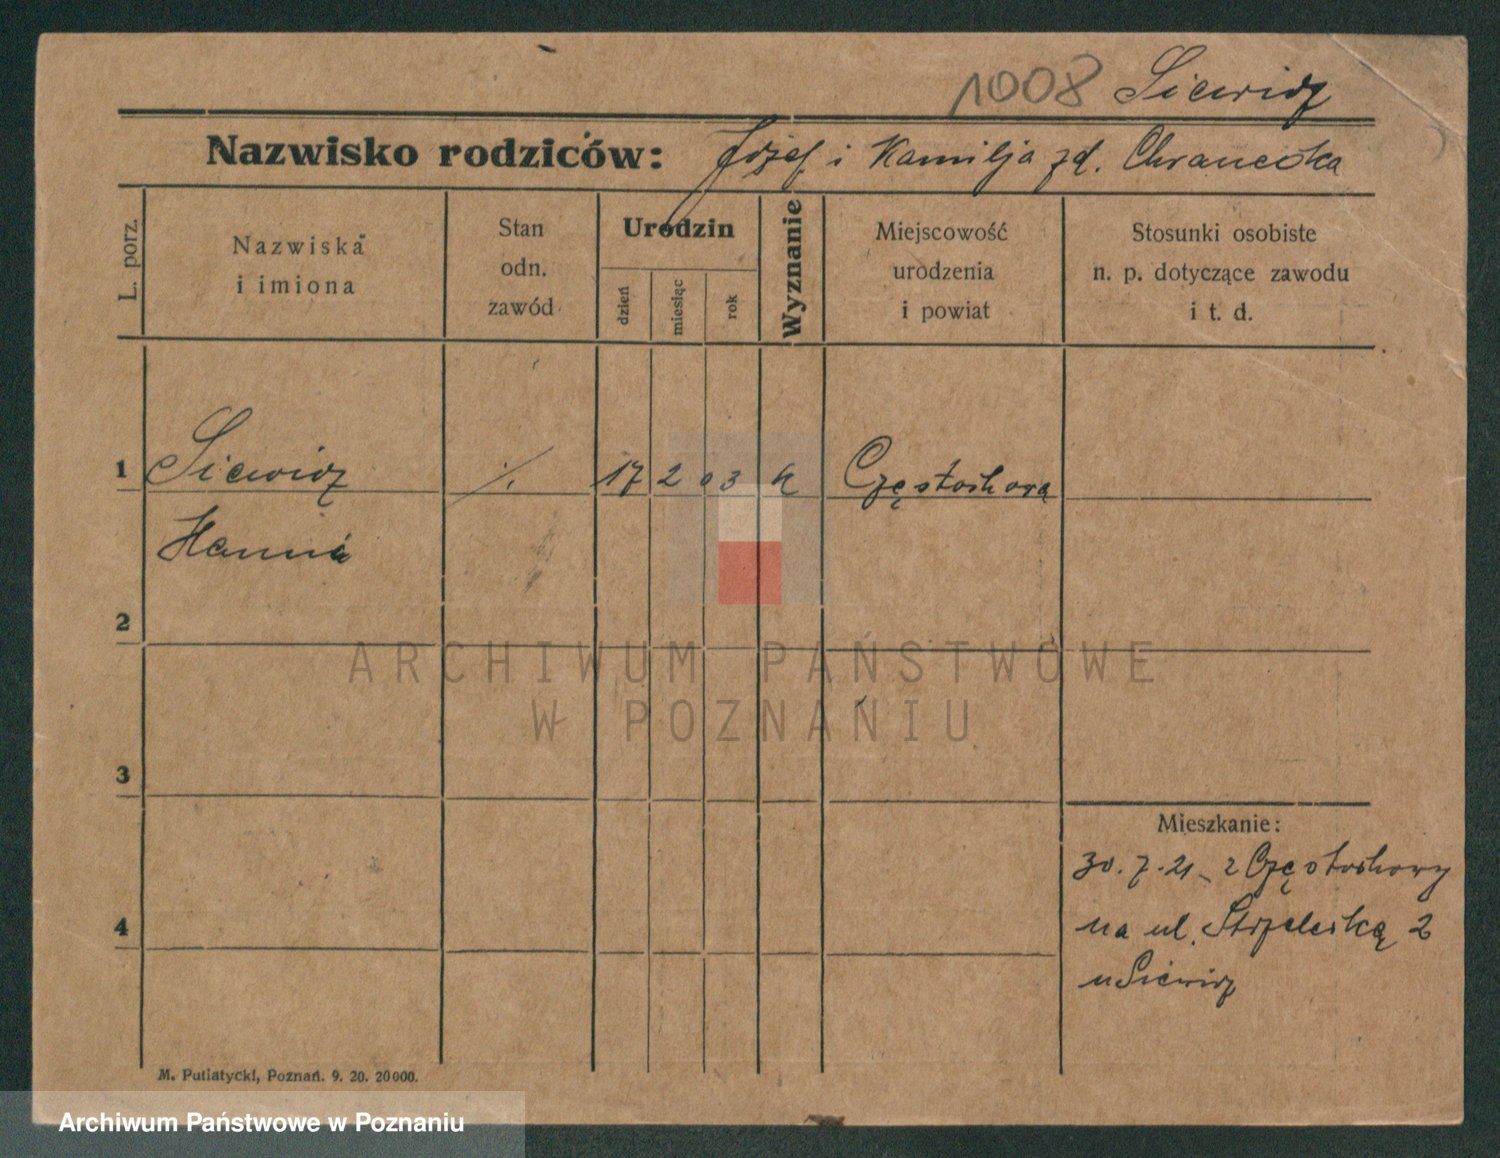 1008 Siewicz
Nazwisko rodziców: Józef i Kamilja zd. Chranecka
L. porz.
Nazwiska
i imiona
Stan
odn.
zawód
Urodzin
dzień
miesiąc
rok
Wyznanie
Miejscowość
urodzenia
i powiat
Stosunki osobiste
n. p. dotyczące zawodu
i t. d.
1 Siewicz ./. 17 2 03 k Częstochowa
Hanna
2
ARCHIWUM PAŃSTWOWE
W POZNANIU
3
Mieszkanie:
30.7.21 z Częstochowy
4 na ul. Strzelecką 2
u Siewicz
M. Putiatycki, Poznań. 9. 20. 20000.
Archiwum Państwowe w Poznaniu